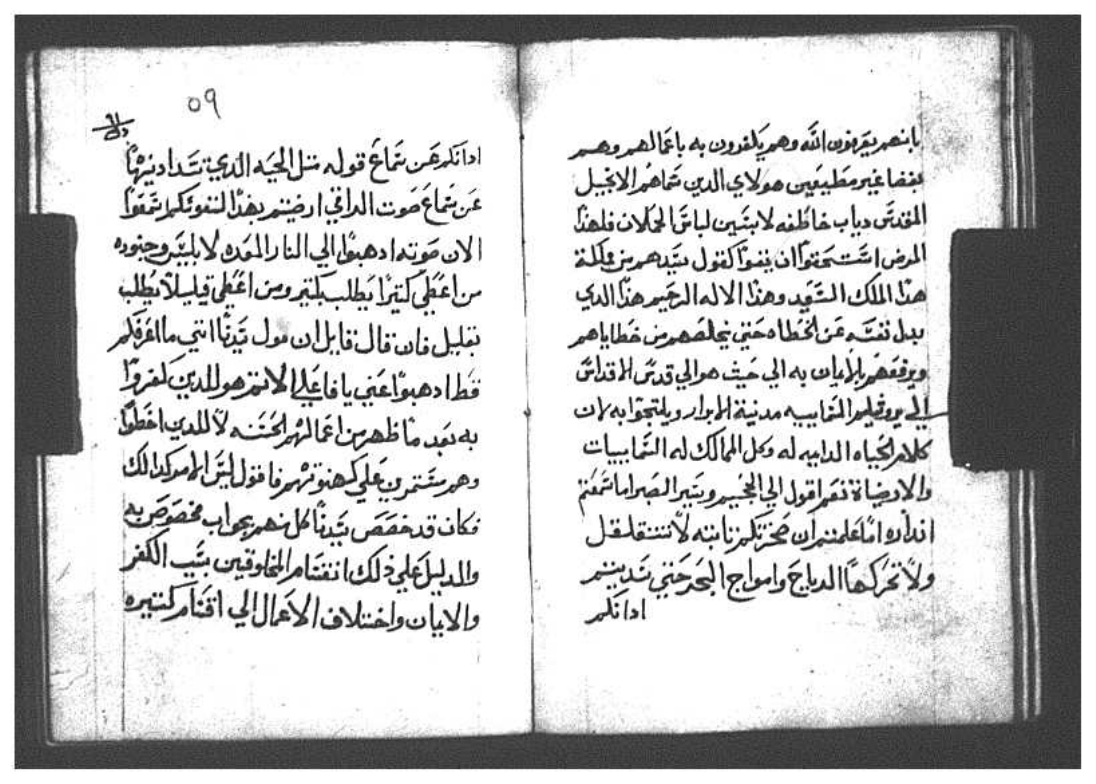 بانهم يعرفون الله وهم يكفرون به باعمالهم وهم
بغضا غير مطيعين هولاي الدين سماهم الانجيل
المقدس دياب خاطفه لابسين لباس الحملان فلهذا
المرض استحقوا ان ينفوا كقول سيدهم من مملكة
هذا الملك السعيد وهذا الاله الرحيم هذا الدي
بدل نفسه عن الخطاه حتي يخلصهم من خطاياهم
ويرفعهم بالايمان به الي حيث هو الي قدس الاقداس
الي يروشليم السماييه مدينة الابرار ويلتجوا به لان
كلام الحياه الدايمه له وكل الممالك له السماييات
والارضياة نعم اقول الي الجحيم وبير الصرا ما سمعتم
انداره اما علمتم ان صخرتكم تابته لا تنتقل
ولا تحركها الدياح وامواج البحر حتي سديتم
ادانكم
٥٩
ادانكم عن سماع قوله متل الحيه الدي تسد ادنيها
عن سماع صوت الداقي ارضيتم بهذا لنفوسكم تسمعوا
الان صوته ادهبوا الي النار المعده لابليس وجنوده
من اعطي كتيرا يطلب بكتير ومن اعطي قليلا يطلب
بقليل فان قال قايل ان قول سيدنا انني ما اعرفكم
قط ادهبوا عني يا فاعلي الاتم هو للدين كفروا
به بعد ما ظهر من اعمالهم الحسنه لا للدين اخطوا
وهم مستمرين علي كهنوتهم فاقول ليس الامر كدالك
فكان قد خصص سيدنا كل منهم بجواب مخصوص به
والدليل علي ذلك انقسام المخلوقين بسبب الكفر
والايمان واختلاف الاعمال الي اقسام كتيره